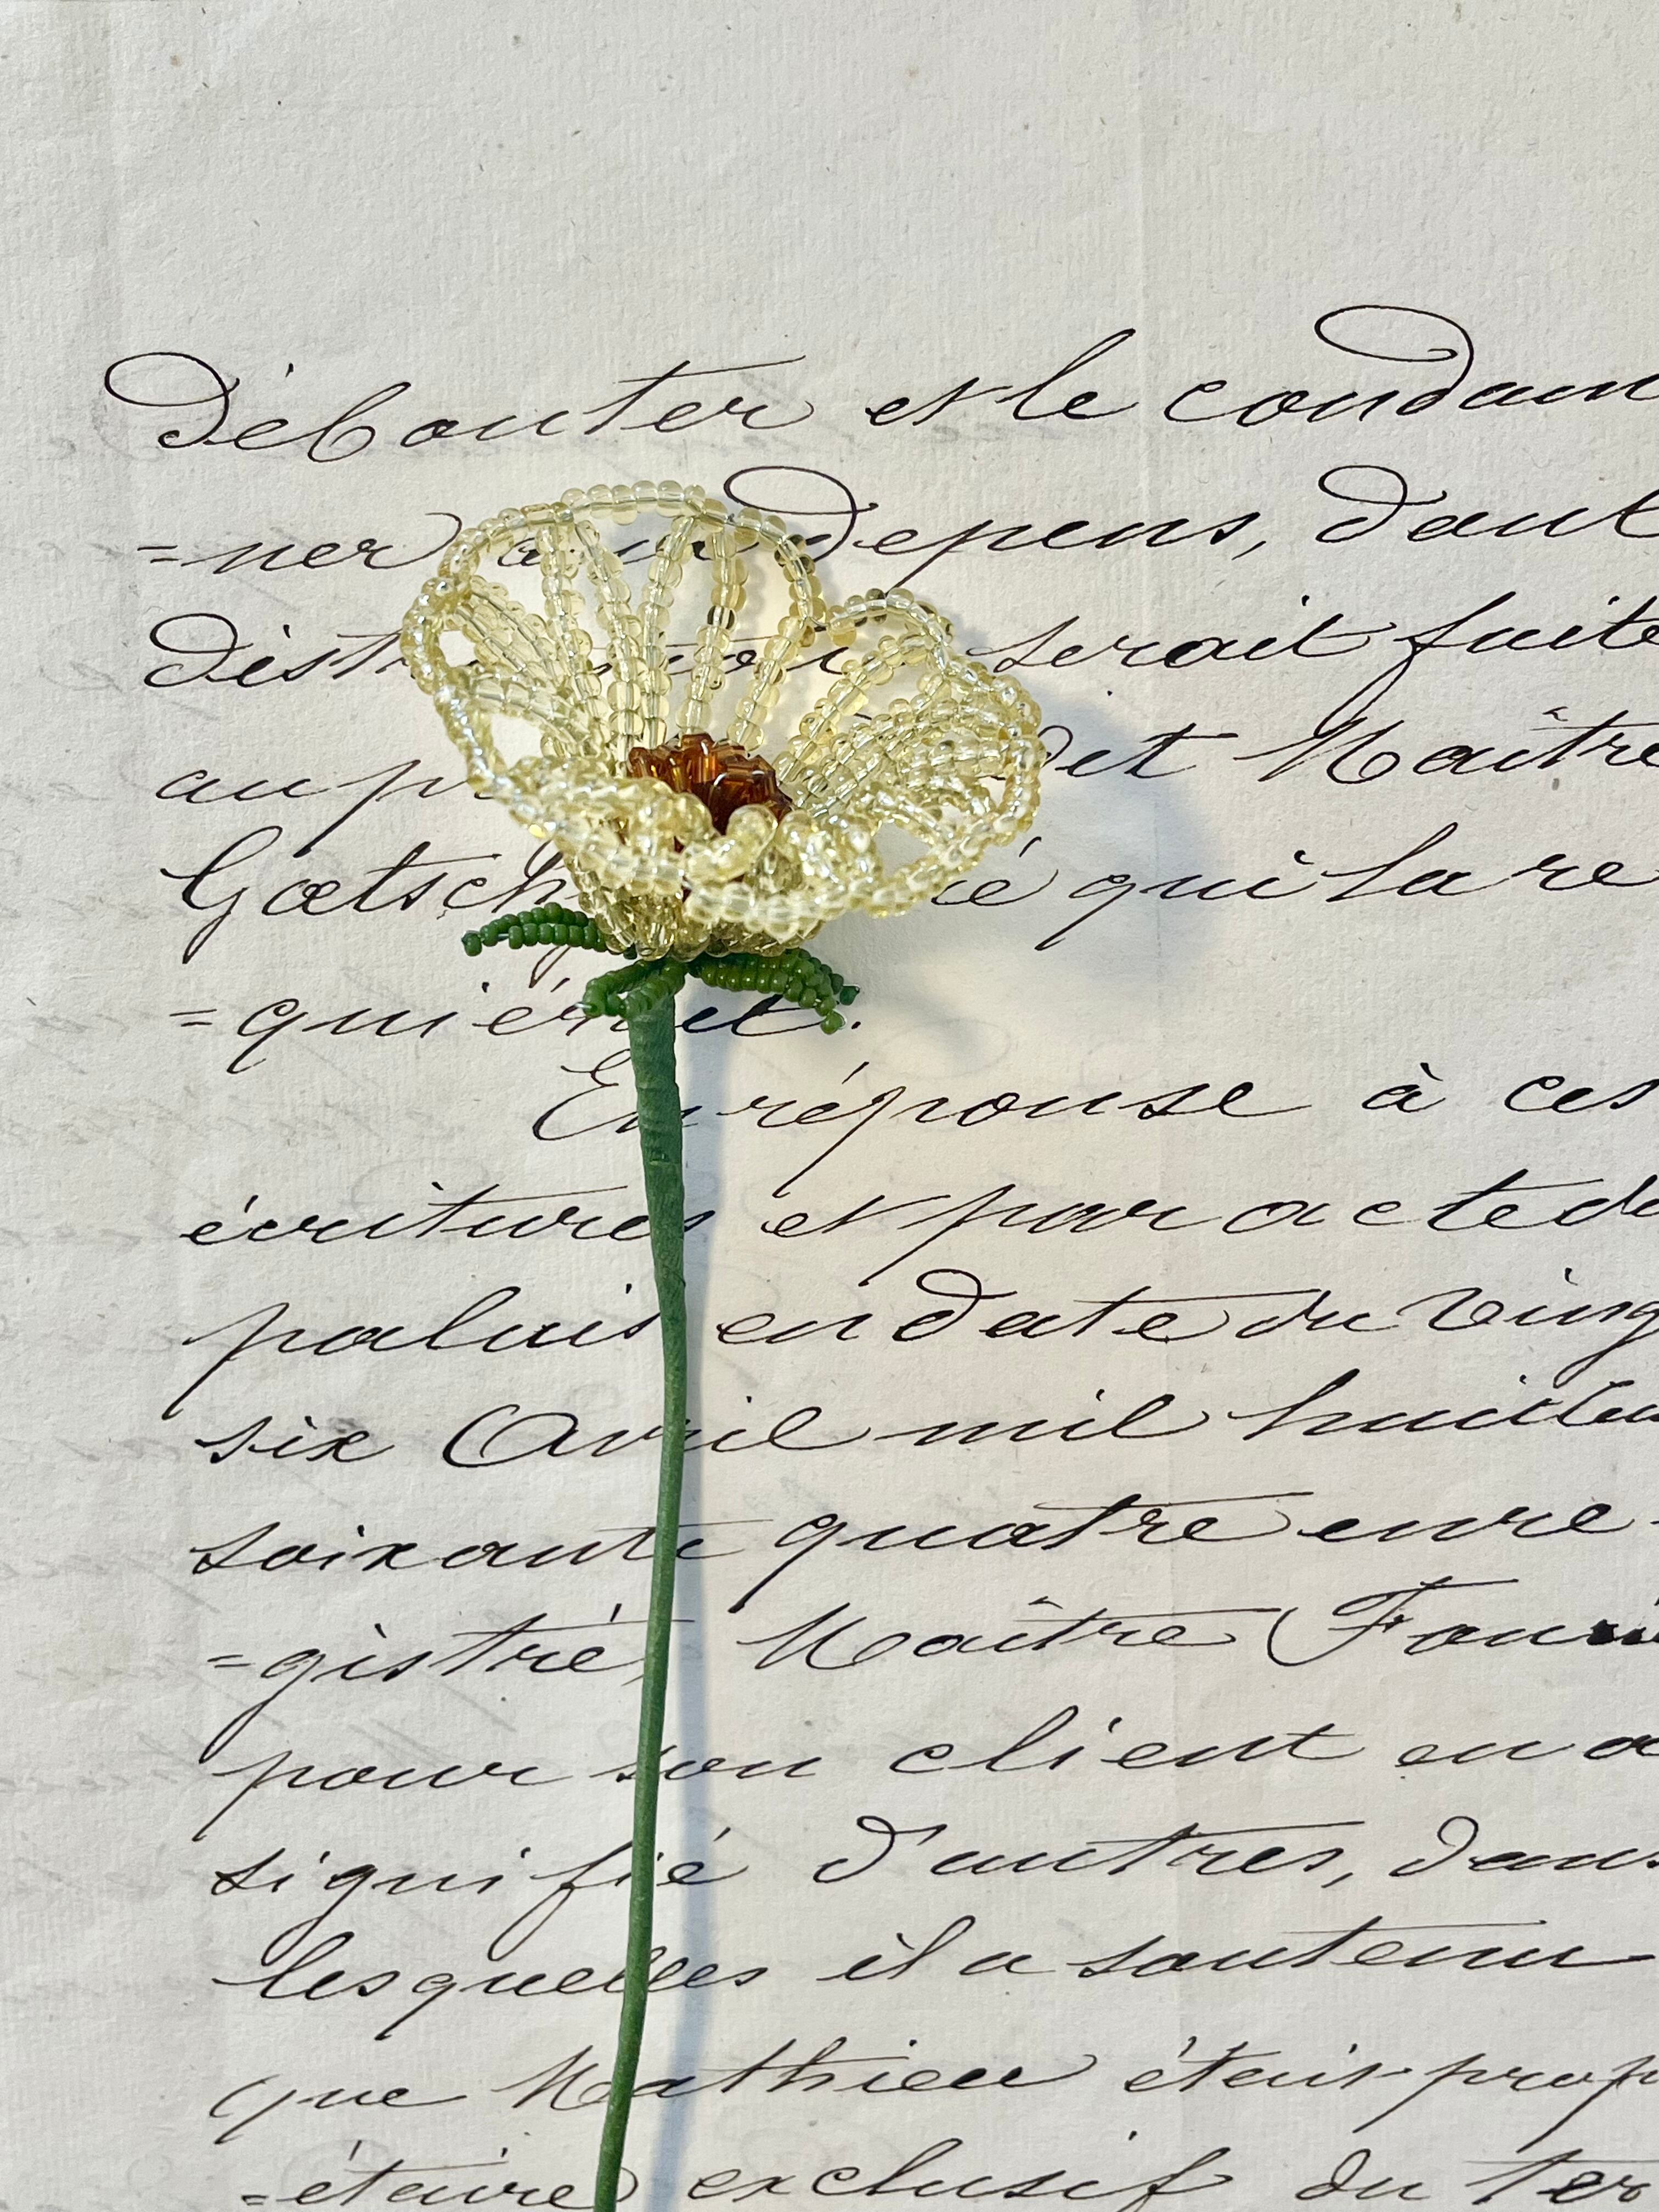 Débouter et le condam
=ner aux Dépens, dont
serait faite
au dit Maître
qui la re
=quièrent.
En réponse à ces
écritures et par acte de
palais en date du Ving
six Avril mil huit
soixante quatre enre
=gistré, Maître
pour son client en a
signifié d'autres, dans
lesquelles il a soutenu
que Mathieu était prop
=étaire exclusif du ter